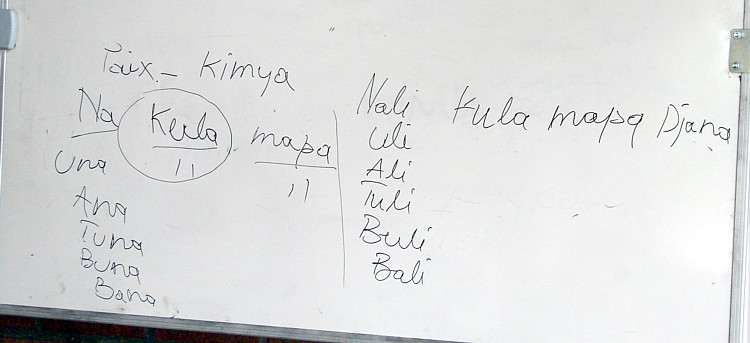 Paix.- Kimya
Na Kula mapa
Una " "
Ana
Tuna
Buna
Bana
Nali Kula mapa Djana
Uli
Ali
Tuli
Buli
Bali